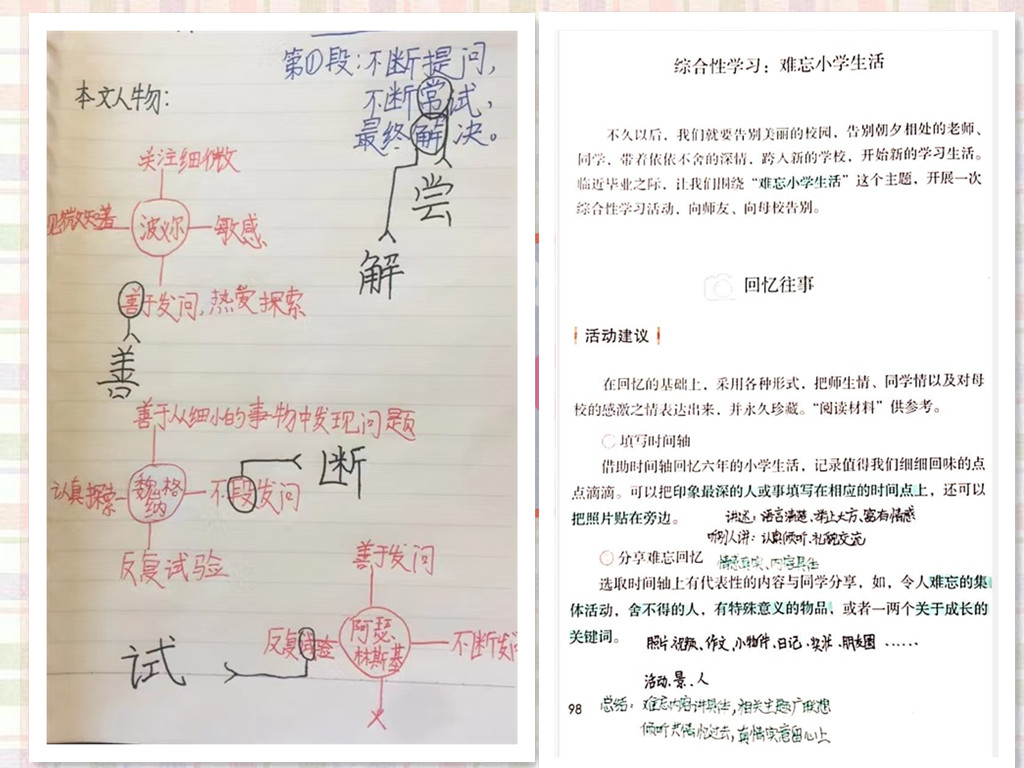 第①段：不断提问，
不断常试，
最终解决。
本文人物：
尝
解
关注细微
见微知著 波义尔 敏感
善于发问，热爱探索
善
善于从细小的事物中发现问题
断
认真探索 魏格纳 不段发问
反复试验
善于发问
反复试验 阿瑟.林斯基 不断发问
试
综合性学习：难忘小学生活
不久以后，我们就要告别美丽的校园，告别朝夕相处的老师、
同学，带着依依不舍的深情，跨入新的学校，开始新的学习生活。
临近毕业之际，让我们围绕“难忘小学生活”这个主题，开展一次
综合性学习活动，向师友、向母校告别。
回忆往事
活动建议
在回忆的基础上，采用各种形式，把师生情、同学情以及对母
校的感激之情表达出来，并永久珍藏。“阅读材料”供参考。
填写时间轴
借助时间轴回忆六年的小学生活，记录值得我们细细回味的点
点滴滴。可以把印象最深的人或事填写在相应的时间点上，还可以
把照片贴在旁边。
讲述：语言清楚、落落大方、富有情感
听别人讲：认真倾听、礼貌交流
分享难忘回忆
情感真实、内容具体
选取时间轴上有代表性的内容与同学分享，如，令人难忘的集
体活动，舍不得的人，有特殊意义的物品，或者一两个关于成长的
关键词。
照片、视频、作文、小物件、日记、奖状、朋友圈 ……
活动、景、人
总结：难忘内容讲具体，相关主题广联想
倾听共情忆过去，真情实意留心上
98